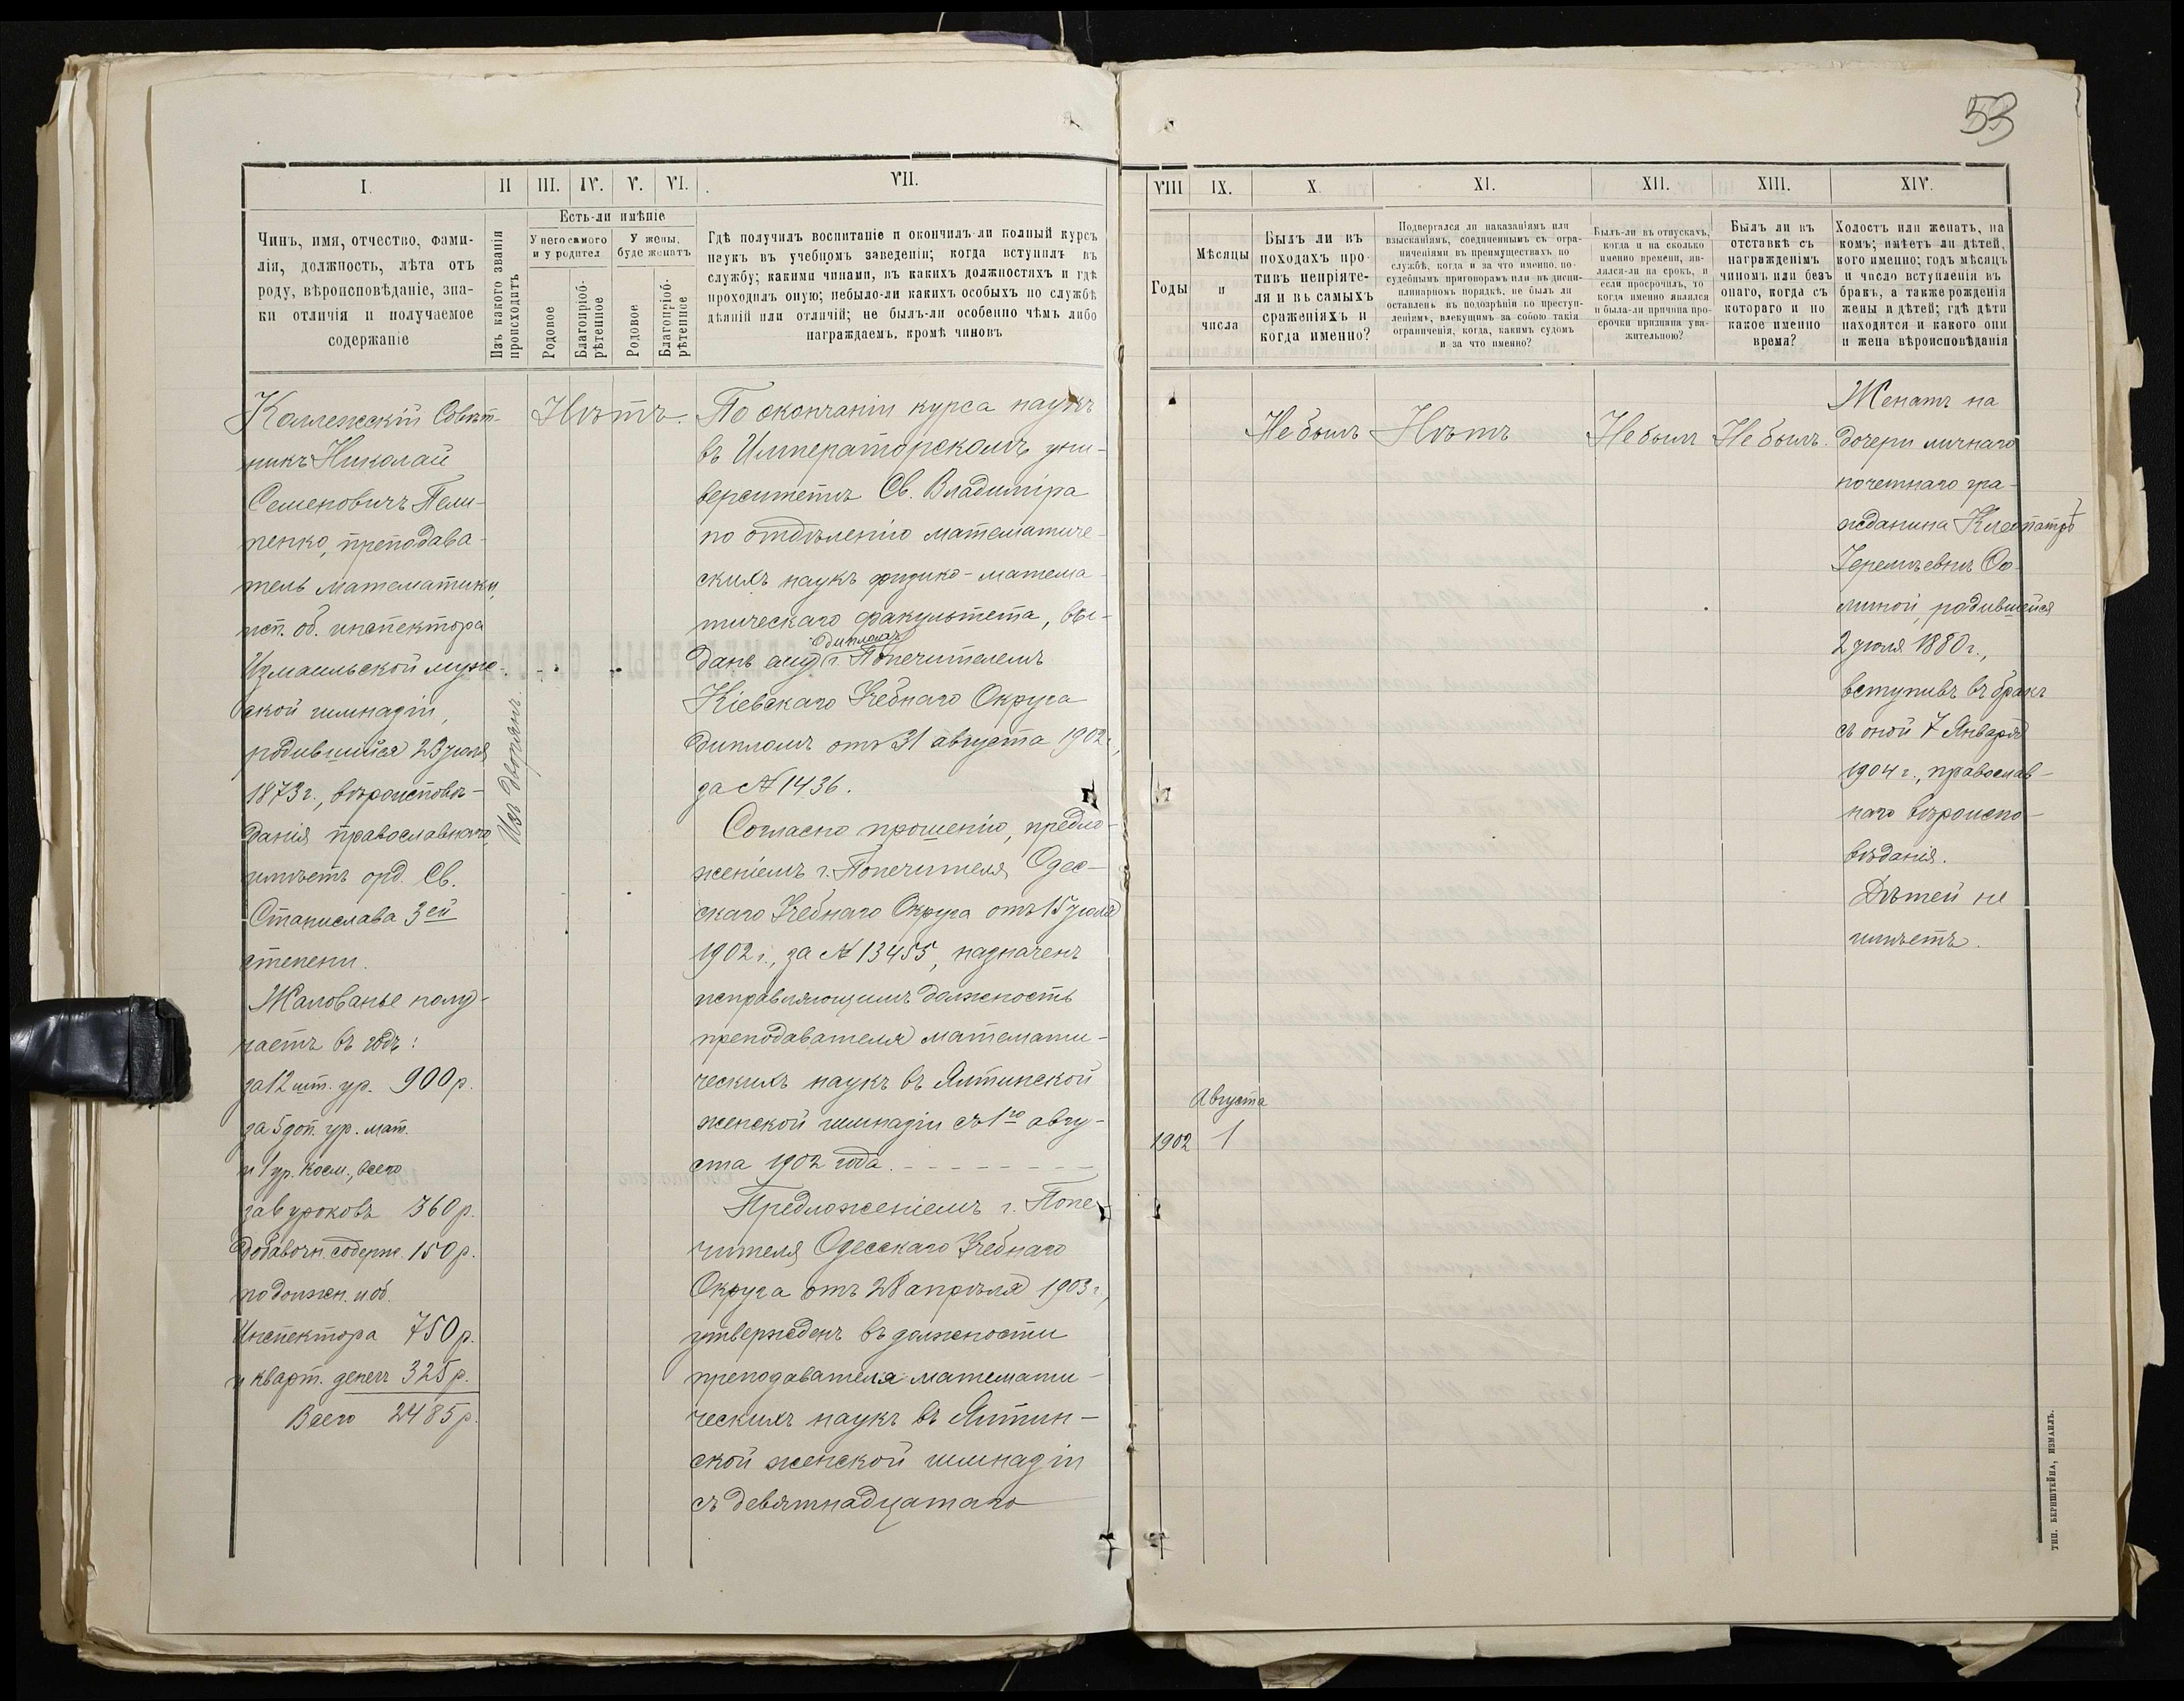 53
I.
II
III.
IV.
V.
VI.
VII.
Чинъ, имя, отчество, фами-
лія, должность, лѣта отъ
роду, вѣроисповѣданіе, зна-
ки отличія и получаемое
содержаніе
Изъ какого званія
происходитъ
Есть-ли имѣніе
У него самого
и у родител.
У жены,
буде женатъ
Родовое
Благопріоб-
рѣтенное
Родовое
Благопріоб-
рѣтенное
Гдѣ получилъ воспитаніе и окончилъ-ли полный курсъ
наукъ въ учебномъ заведеніи; когда вступилъ въ
службу; какими чинами, въ какихъ должностяхъ и гдѣ
проходилъ оную; небыло-ли какихъ особыхъ по службѣ
дѣяній или отличій; не былъ-ли особенно чѣмъ либо
награждаемъ, кромѣ чиновъ
Коллежскій Совѣт-
никъ Николай
Семеновичъ Пели-
пенко, преподава-
тель математики,
исп. об. инспектора
Измаильской муж-
ской гимназіи,
родившійся 23 іюля
1873 г., вѣроисповѣ-
данія православнаго,
имѣетъ орд. Св.
Станислава 3ей
степени.
Жалованье полу-
чаетъ въ годъ:
за 12 шт. ур. 900 р.
за 5 доп. ур. мат.
и 1 ур. косм., всего
за 6 уроковъ 360 р.
добавочн. содерж. 150 р.
по должн. и об.
Инспектора 750 р.
и кварт. денегъ 325 р.
Всего 2485 р.
Изъ дворянъ.
Нѣтъ.
По окончаніи курса наукъ
въ Императорскомъ уни-
верситетѣ Св. Владиміра
по отдѣленію математиче-
скихъ наукъ физико-матема-
тическаго факультета, вы-
дипломъ
данъ ему г. Попечителемъ
Кіевскаго Учебнаго Округа
дипломъ отъ 31 августа 1902 г.,
за № 1436.
Согласно прошенію, предло-
женіемъ г. Попечителя Одес-
скаго Учебнаго Округа отъ 15 іюля
1902 г., за № 13455, назначенъ
исправляющимъ должность
преподавателя математи-
ческихъ наукъ въ Ялтинской
женской гимназіи съ 1го авгу-
ста 1902 года.
Предложеніемъ г. Попе-
чителя Одесскаго Учебнаго
Округа отъ 28 апрѣля 1903 г.,
утвержденъ въ должности
преподавателя математи-
ческихъ наукъ въ Ялтин-
ской женской гимназіи
съ девятнадцатаго
VIII
IX.
X.
XI.
XII.
XIII.
XIV.
Годы
Мѣсяцы
и
числа
Былъ ли въ
походахъ про-
тивъ непріяте-
ля и въ самыхъ
сраженіяхъ и
когда именно?
Подвергался ли наказаніямъ или
взысканіямъ, соединеннымъ съ огра-
ниченіями въ преимуществахъ по
службѣ, когда и за что именно, по
судебнымъ приговорамъ или въ дисци-
плинарномъ порядкѣ, не былъ ли
оставленъ въ подозрѣніи по преступ-
леніямъ, влекущимъ за собою такія
ограниченія, когда, какимъ судомъ
и за что именно?
Былъ-ли въ отпускахъ,
когда и на сколько
именно времени, яв-
лялся-ли на срокъ, и
если просрочилъ, то
когда именно явился
и была-ли причина про-
срочки признана ува-
жительною?
Былъ ли въ
отставкѣ съ
награжденімъ
чиномъ или безъ
онаго, когда съ
котораго и по
какое именно
время?
Холостъ или женатъ, на
комъ; имѣетъ ли дѣтей,
кого именно; годъ мѣсяцъ
и число вступленія въ
бракъ, а также рожденія
жены и дѣтей; гдѣ дѣти
находятся и какого они
и жена вѣроисповѣданія
Не былъ
Нѣтъ
Не былъ
Не былъ.
Женатъ на
дочери личнаго
почетнаго гра-
жданина Клеопатрѣ
Іереміевнѣ
родившейся
2 іюля 1880 г.,
вступивъ въ бракъ
съ оной 7 Января
1904 г., православ-
наго вѣроиспо-
вѣданія.
Дѣтей не
имѣетъ.
Августа
1902 1
ТИП. БЕРНШТЕЙНА, ИЗМАИЛЪ.